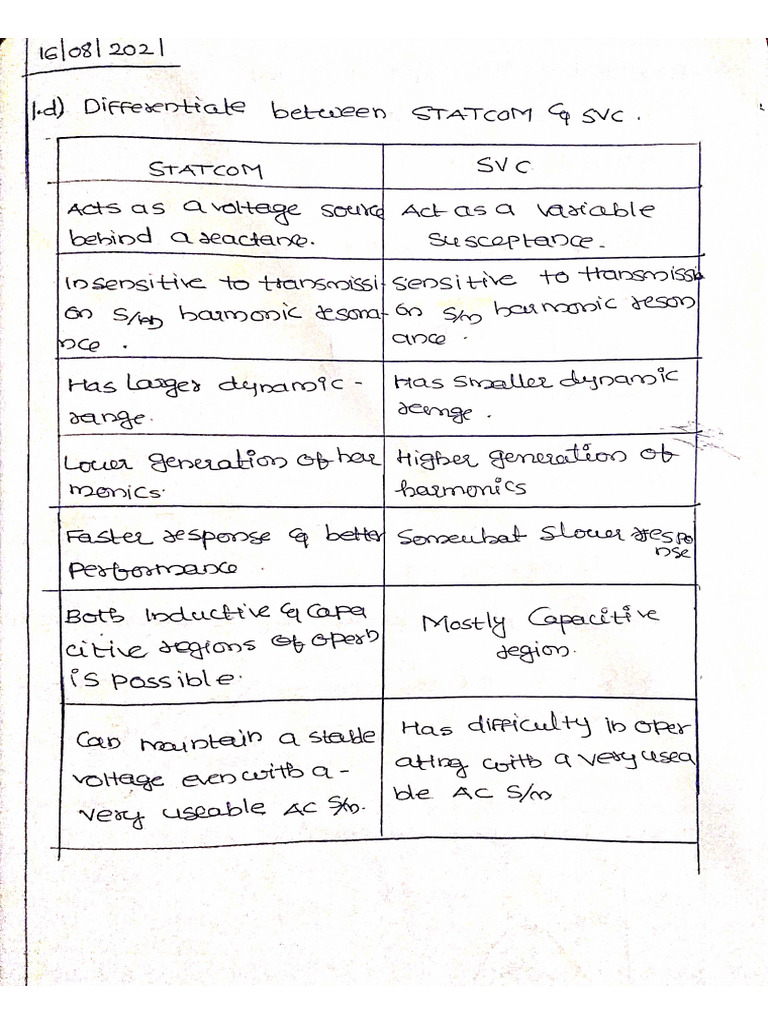 16/08/2021
1.d) Differentiate between STATCOM & SVC.
STATCOM
SVC
Acts as a voltage source
behind a reactance.
Act as a variable
susceptance.
Insensitive to transmissi-
on S/m harmonic resona-
nce.
Sensitive to transmissi
on S/m harmonic reson
ance.
Has Larger dynamic -
range.
Has smaller dynamic
range.
Lower generation of har
monics.
Higher generation of
harmonics
Faster response & better
performance.
Somewhat slower respo
nse
Both inductive & capa
citive regions of opern
is possible.
Mostly Capacitive
region.
Can maintain a stable
voltage even with a -
very useable AC S/m.
Has difficulty in oper
ating with a very usea
ble AC S/m